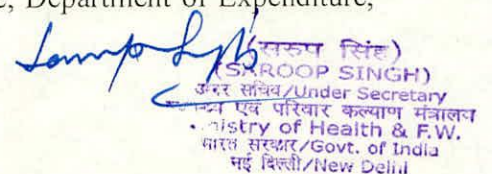 e, Department of Expenditure,
(सरुप सिंह)
(SAROOP SINGH)
अवर सचिव/Under Secretary
एवं परिवार कल्याण मंत्रालय
Ministry of Health & F.W.
भारत सरकार/Govt. of India
नई दिल्ली/New Delhi